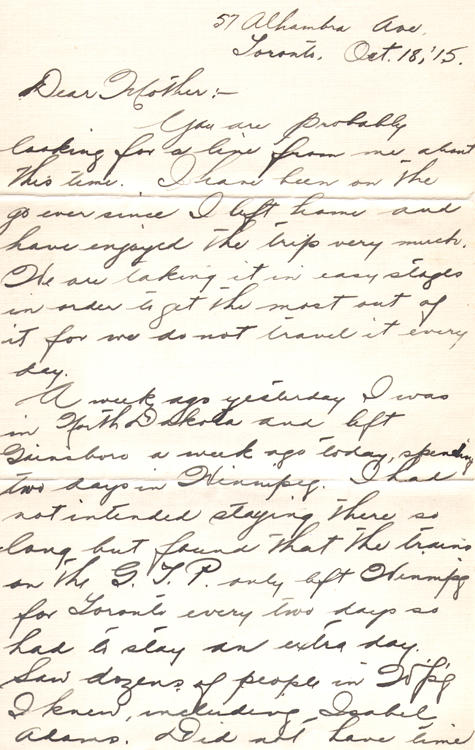 57 Alhambra Ave.
Toronto, Oct. 18,'15.
Dear Mother:-
You are probably
looking for a line from me about
this time. I have been on the
go ever since I left home and
have enjoyed the trip very much.
We are taking it in easy stages
in order to get the most out of
it for we do not travel it every
day.
A week ago yesterday I was
in North Dakota and left
Gainsboro a week ago today, spending
two days in Winnipeg. I had
not intended staying there so
long but found that the trains
on the G. T. P. only left Winnipeg
for Toronto every two days so
had to stay an extra day.
Saw dozens of people in W'p'g
I knew, including Isabel
Adams. Did not have time